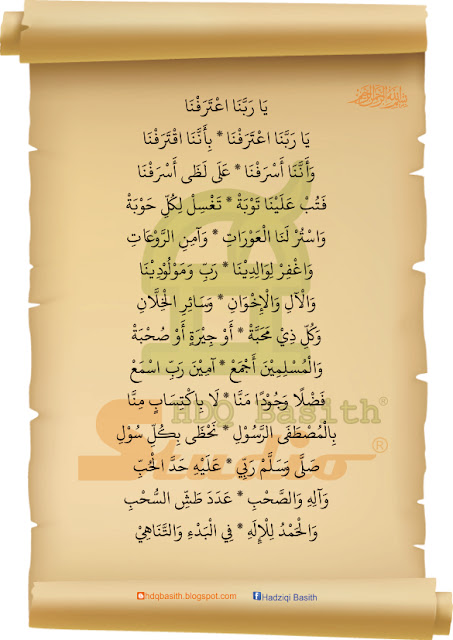 بسم الله الرحمن الرحيم
يَا رَبَّنَا اعْتَرَفْنَا
يَا رَبَّنَا اعْتَرَفْنَا * بِأَنَّنَا اقْتَرَفْنَا
وَأَنَّنَا أَسْرَفْنَا * عَلَى لَظَى أَسْرَفْنَا
فَتُبْ عَلَيْنَا تَوْبَةْ * تَغْسِلْ لِكُلِّ حَوْبَةْ
وَاسْتُرْ لَنَا الْعَوْرَاتِ * وَآمِنِ الرَّوْعَاتِ
وَاغْفِرْ لِوَالِدِيْنَا * رَبِّ وَمَوْلُوْدِيْنَا
وَالْآلِ وَالْإِخْوَانِ * وَسَائِرِ الْخِلَّانِ
وَكُلِّ ذِيْ مَحَبَّةْ * أَوْ جِيْرَةٍ أَوْ صُحْبَةْ
وَالْمُسْلِمِيْنَ أَجْمَعْ * آمِيْنَ رَبِّ اسْمَعْ
فَضْلًا وَجُوْدًا مَنَّا * لَا بِاكْتِسَابٍ مِنَّا
بِالْمُصْطَفَى الرَّسُوْلِ * نَحْظَى بِكُلِّ سُوْلِ
صَلَّى وَسَلَّمْ رَبِّي * عَلَيْهِ حَدَّ الْحُبِّ
وَآلِهِ وَالصَّحْبِ * عَدَدَ طَشِّ السُّحْبِ
وَالْحَمْدُ لِلْإِلَهِ * فِي الْبَدْءِ وَالتَّنَاهِيْ
HDQ Basith®
Studio®
hdqbasith.blogspot.com Hadziqi Basith